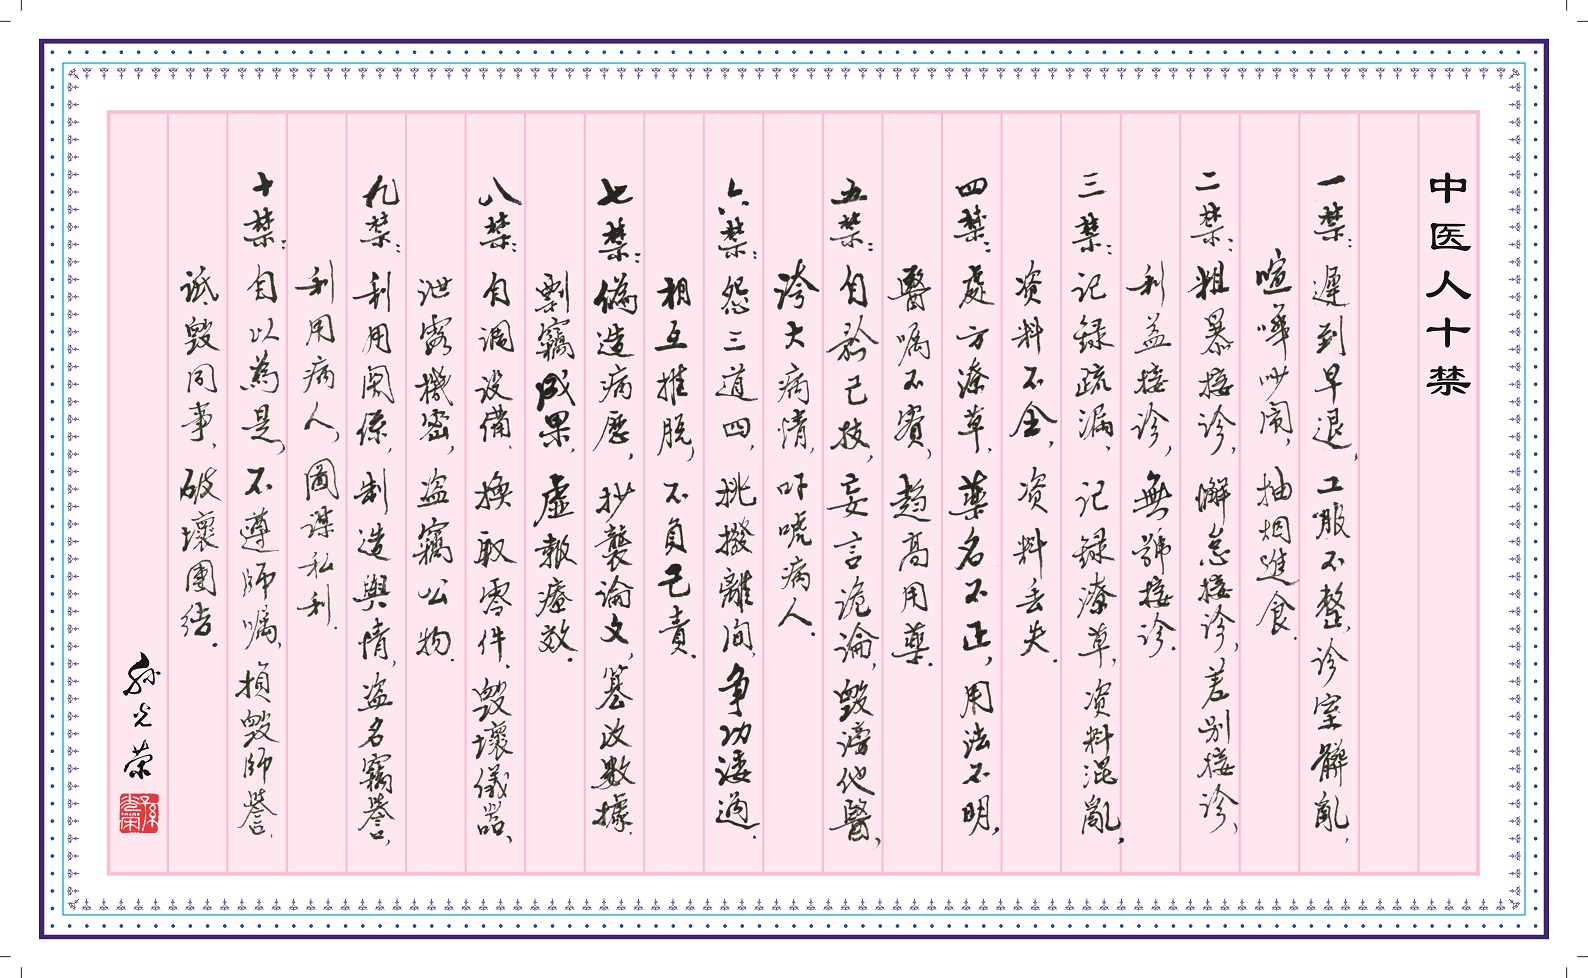 中医人十禁
一禁：遲到早退，工服不整，诊室髒亂，
喧嘩吵闹，抽烟進食．
二禁：粗暴接诊，懈怠接诊，差别接诊，
利益接诊，無號接诊．
三禁：记録疏漏，记録潦草，资料混亂，
资料不全，资料丢失．
四禁：處方潦草，藥名不正，用法不明，
醫嘱不賓，趋高用藥．
五禁：自矜己技，妄言诡論，毁谤他醫，
誇大病情，吓唬病人．
六禁：怨三道四，挑撥離间，争功诿過．
相互推脱，不負己責．
七禁：偽造病歷，抄襲論文，篡改數據．
剽竊成果，虚報療效．
八禁：自调设備，换取零件，毁壞儀器，
泄露機密，盗竊公物．
九禁：利用関係，制造輿情，盗名竊譽，
利用病人，圖谋私利．
十禁：自以為是，不遵師嘱，損毁師譽．
诋毁同事，破壞團结．
孙光荣
孫光榮